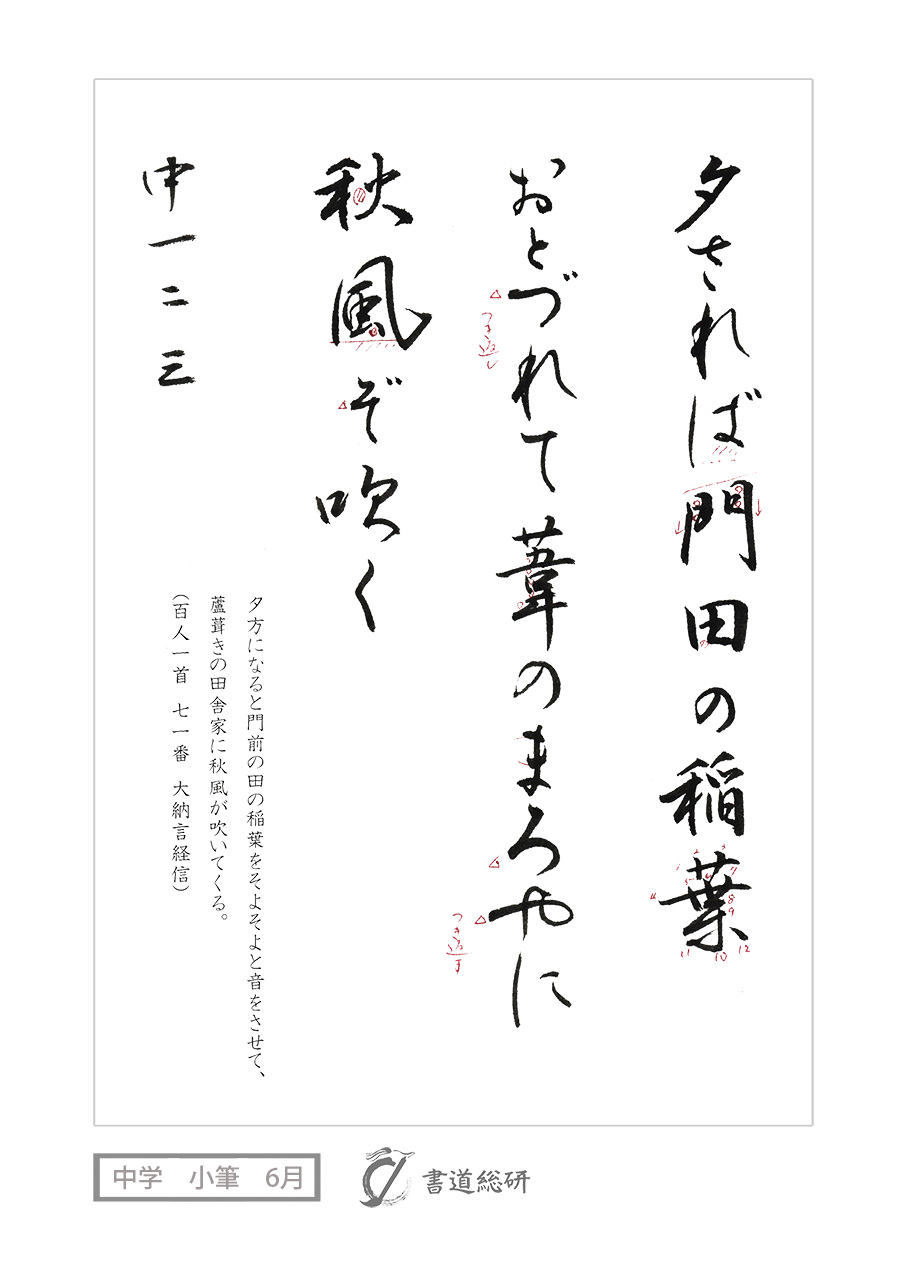 夕されば門田の稲葉
おとづれて葦のまろやに
秋風ぞ吹く
中一二三
夕方になると門前の田の稲葉をそよそよと音をさせて、
蘆葺きの田舎家に秋風が吹いてくる。
（百人一首 七一番 大納言経信）
つき返し
つき返す
8
9
10
11
12
中学 小筆 6月
書道総研